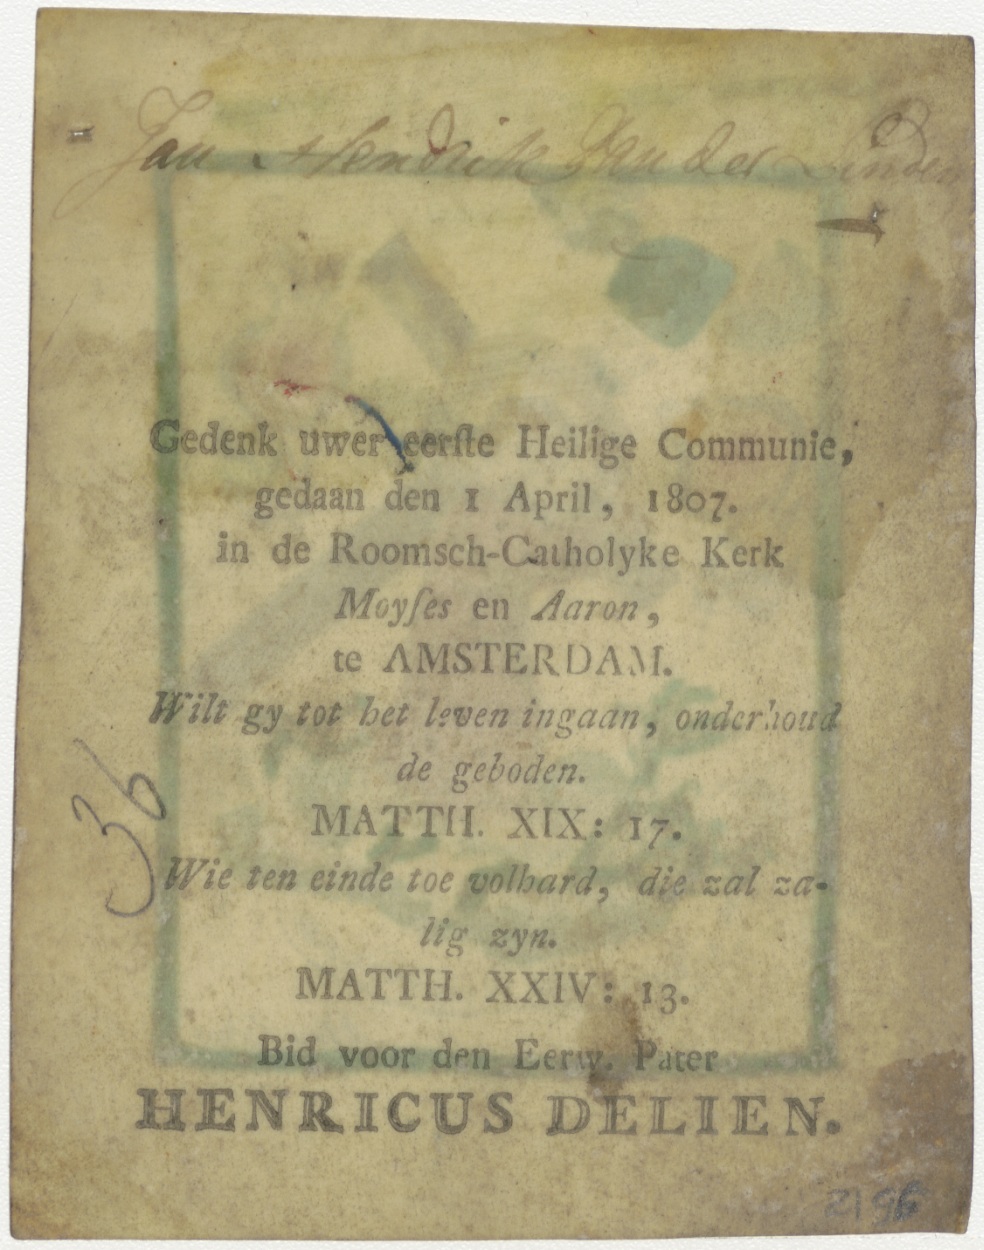 Jan Hendrik Van der Linden
Gedenk uwer eerſte Heilige Communie,
gedaan den 1 April, 1807.
in de Roomsch-Catholyke Kerk
Moyſes en Aaron,
te AMSTERDAM.
Wilt gy tot het leven ingaan, onderhoud
de geboden.
MATTH. XIX: 17.
36
Wie ten einde toe volhard, die zal za-
lig zyn.
MATTH. XXIV: 13.
Bid voor den Eerw. Pater
HENRICUS DELIEN.
2196